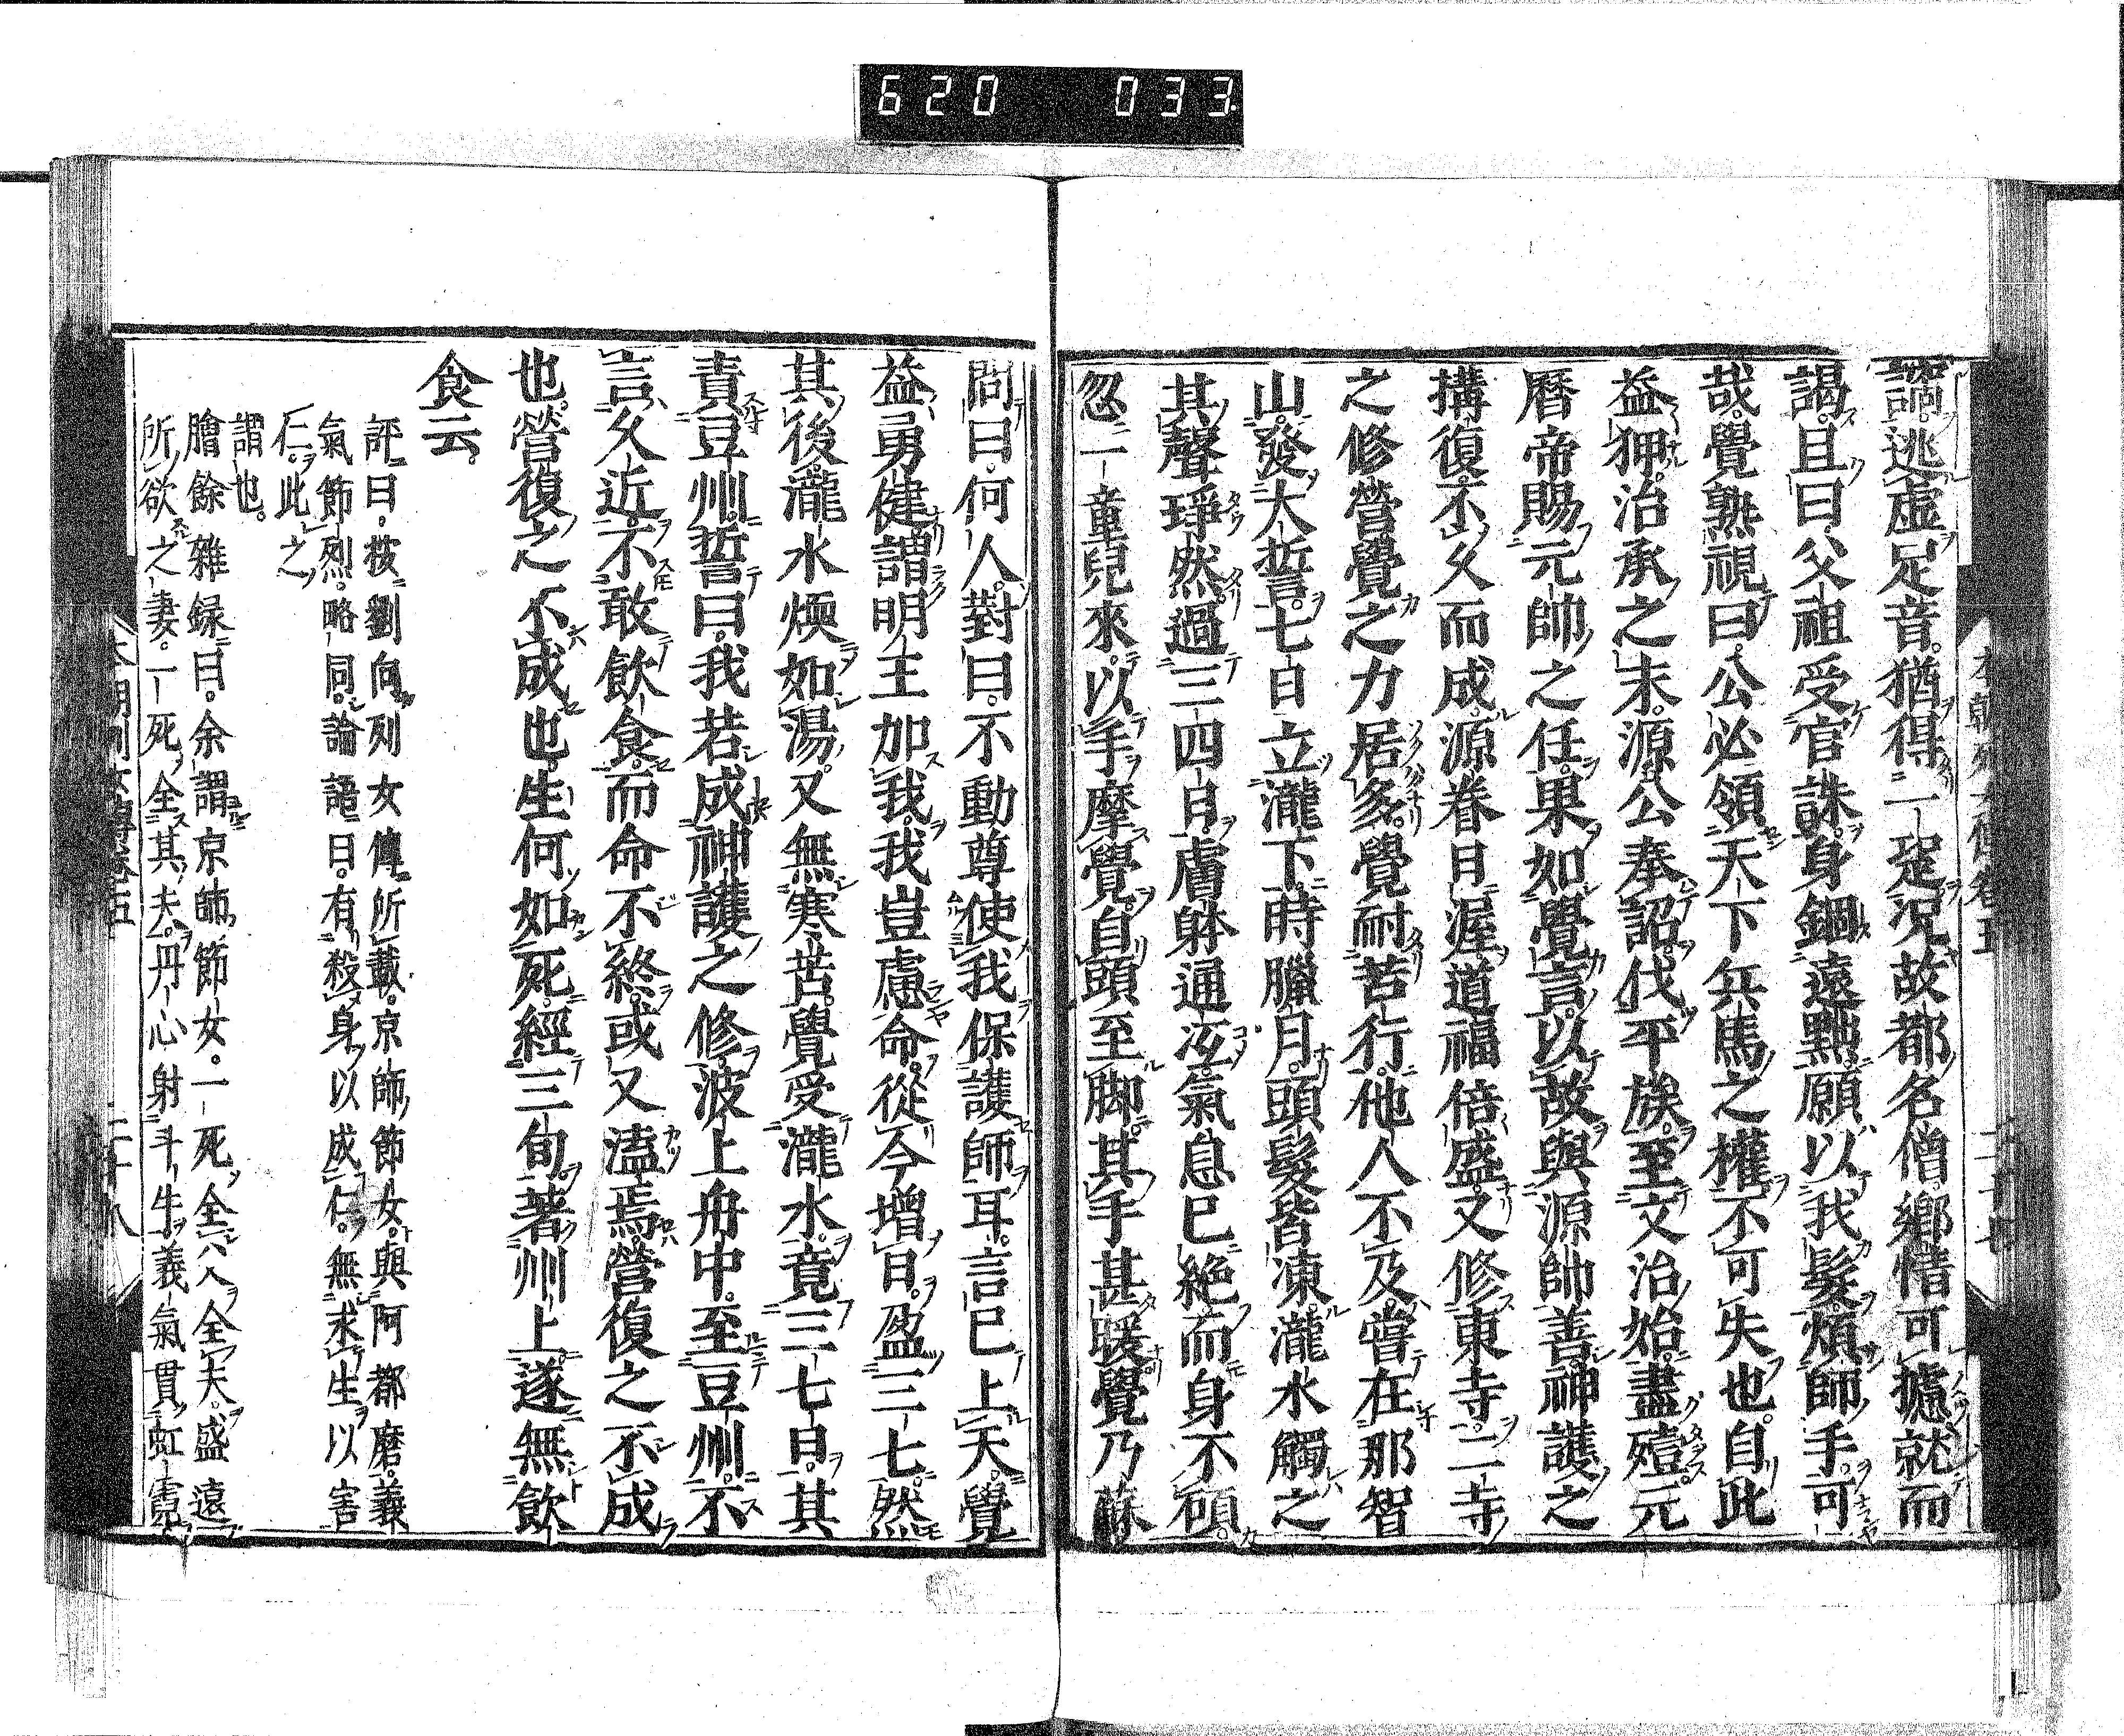 620 033
謫逃虛足音猶得一跫況故都名僧鄉情可攄就而
謁且曰父祖受官誅身錮遠點願以我髮煩師手可
哉覺熟視曰公必領天下兵馬之權不可失也自此
益狎治承之末源公奉詔伐平族至文治始盡殪元
曆帝賜元帥之任果如覺言以故與源帥善神護之
搆復不久而成源眷日渥道福倍盛又修東寺二寺
之修營覺之力居多覺耐苦行他人不及嘗在那智
山發大誓七日立瀧下時臘月頭髮皆凍瀧水觸之
其聲琤然過三四日膚躰通冱氣息已絕而身不傾
忽一童兒來以手摩覺自頭至脚其手甚暖覺乃蘇
問曰何人對曰不動尊使我保護師耳言已上天覺
益勇健謂明王加我我豈慮命從今增日盈三七然
其後瀧水煖如湯又無寒苦覺受瀧水竟三七日其
責豆州誓曰我若成神護之修波上舟中至豆州不
言久近不敢飲食而命不終或又溘焉營復之不成
也營復之不成也生何如死經三旬著州上遂無飲
食云
評曰按劉向列女傳所載京師節女與阿都磨義
氣節烈略同論語曰有殺身以成仁無求生以害
仁此之
謂也
膾餘雜録曰余謂京師節女一死全六人全夫盛遠
所欲之妻一死全其夫丹心射斗牛義氣貫虹霓